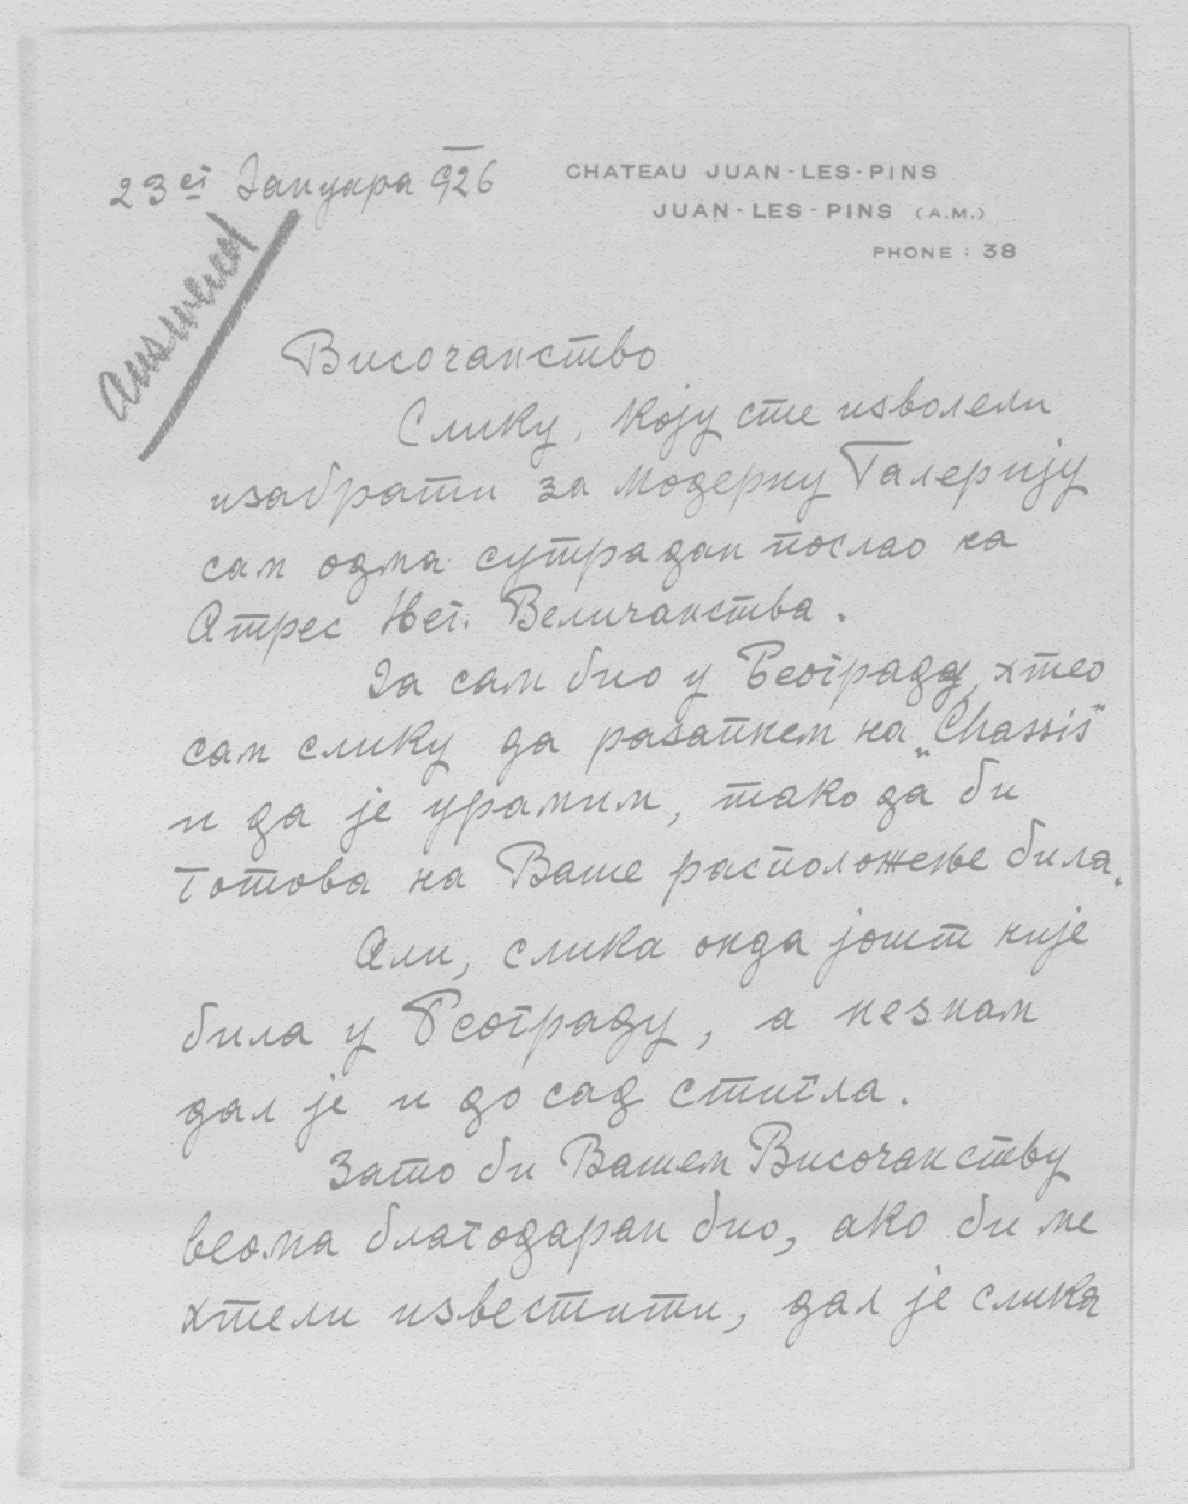 23ег Јануара 926
CHATEAU JUAN-LES-PINS
JUAN-LES-PINS (A.M.)
PHONE : 38
answered
Височанство
Слику, коју сте изволели
изабрати за модерну Галерију
сам одма сутрадан послао на
Атрес Њег. Величанства.
Ја сам био у Београду, хтео
сам слику да разапнем на „Chassis"
и да је урамим, тако да би
готова на Ваше расположење била.
Али, слика онда јошт није
била у Београду, а незнам
дал је и до сад стигла.
Зато би Вашем Височанству
веома благодаран био, ако би ме
хтели известити, дал је слика